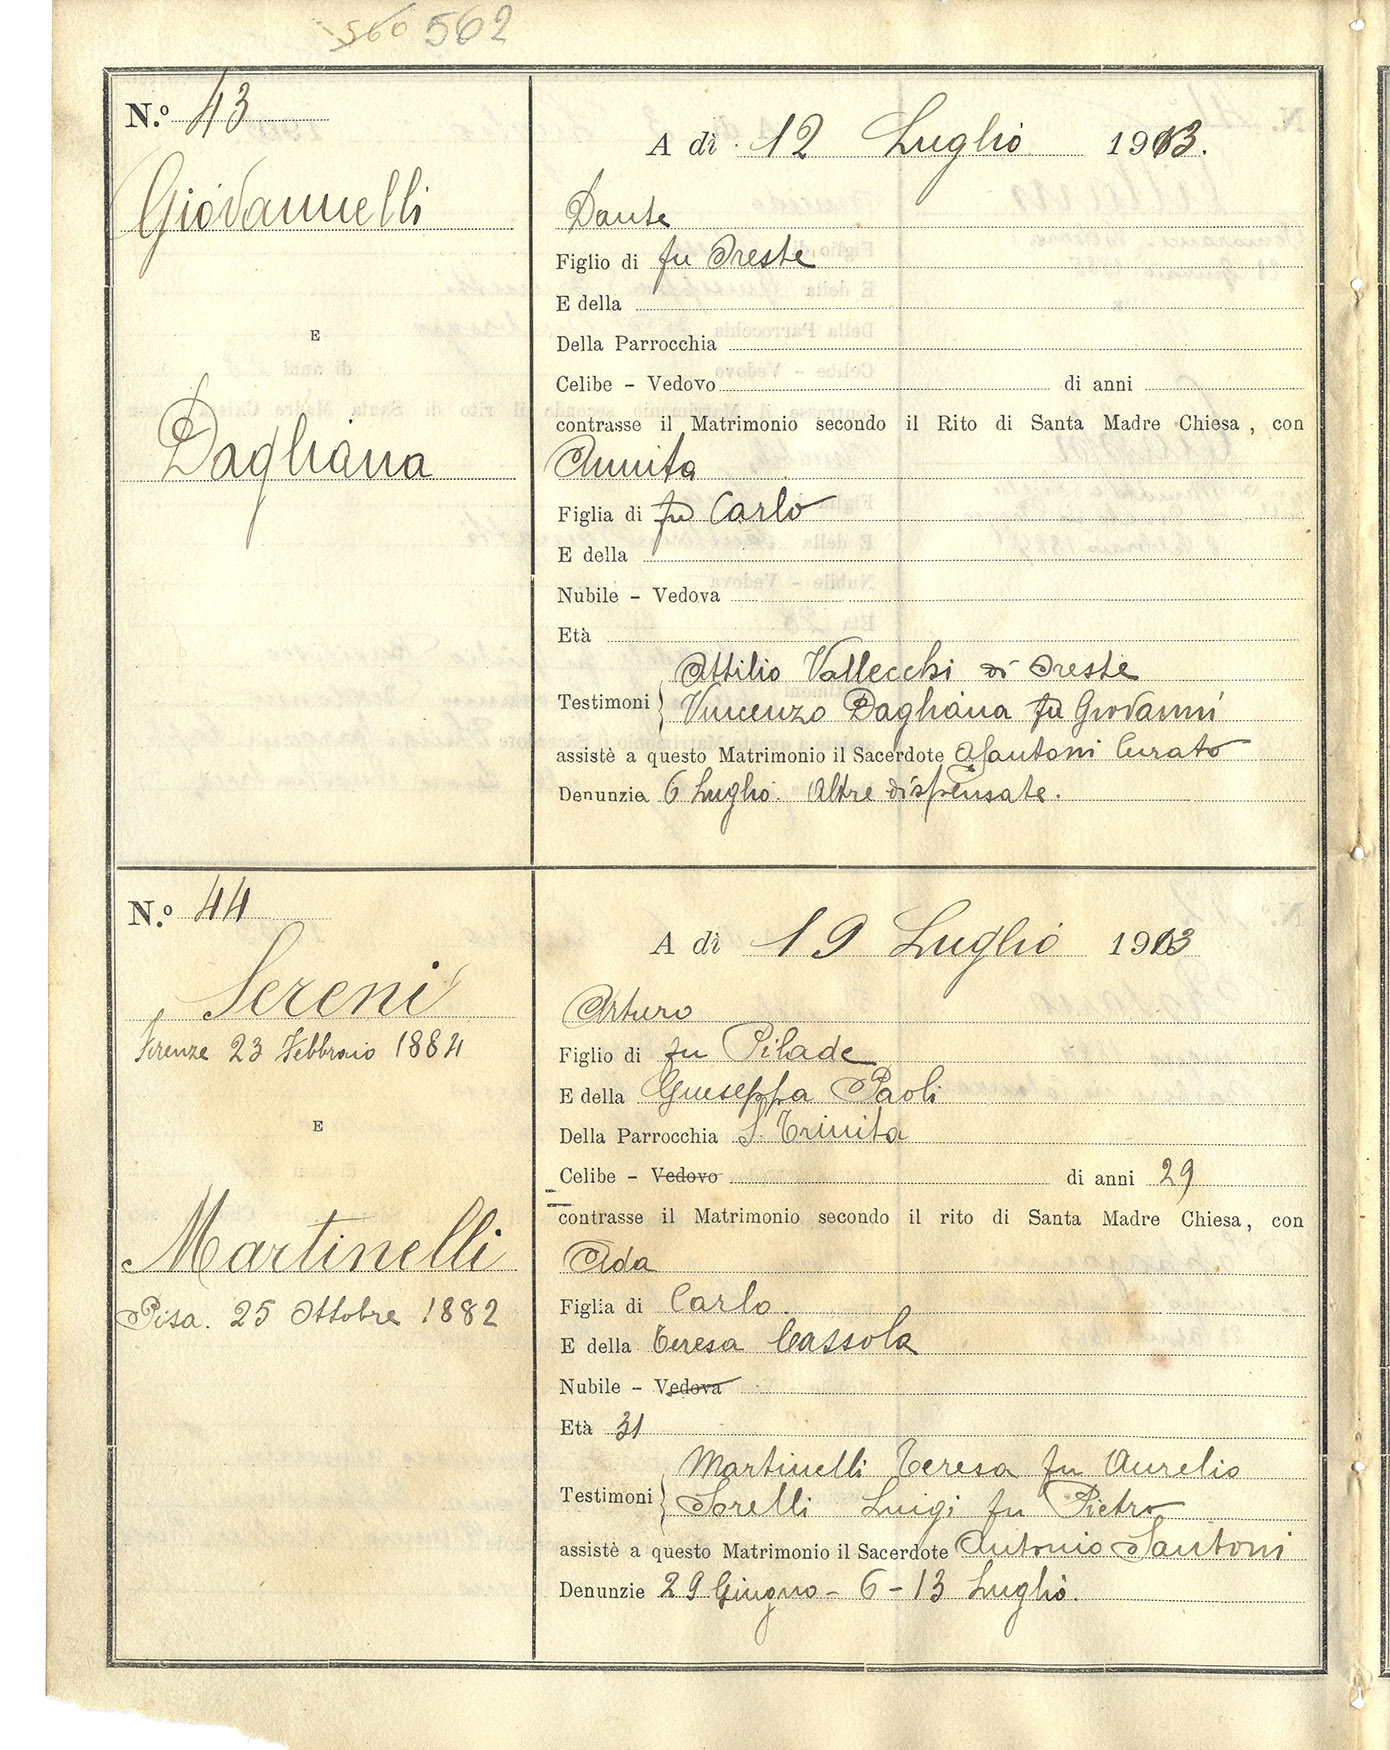 560 562
N.º 43
A dì 12 Luglio 1913.
Giovannelli
Dante
Figlio di fu Oreste
E della
E
Della Parrocchia
Celibe - Vedovo di anni
contrasse il Matrimonio secondo il Rito di Santa Madre Chiesa, con
Dagliana
Annita
Figlia di fu Carlo
E della
Nubile - Vedova
Età
Testimoni { Attilio Vallecchi di Oreste
Vincenzo Dagliana fu Giovanni
assistè a questo Matrimonio il Sacerdote ASantoni Curato
Denunzie 6 Luglio. Altre dispensate.
N.º 44
A dì 19 Luglio 1913
Sereni
Firenze 23 Febbraio 1884
Arturo
Figlio di fu Pilade
E della Giuseppa Paoli
E
Della Parrocchia S. Trinita
Celibe - Vedovo di anni 29
contrasse il Matrimonio secondo il rito di Santa Madre Chiesa, con
Martinelli
Pisa. 25 Ottobre 1882
Ada
Figlia di Carlo
E della Teresa Cassola
Nubile - Vedova
Età 31
Testimoni { Martinelli Teresa fu Aurelio
Sorelli Luigi fu Pietro
assistè a questo Matrimonio il Sacerdote Antonio Santoni
Denunzie 29 Giugno - 6 - 13 Luglio.